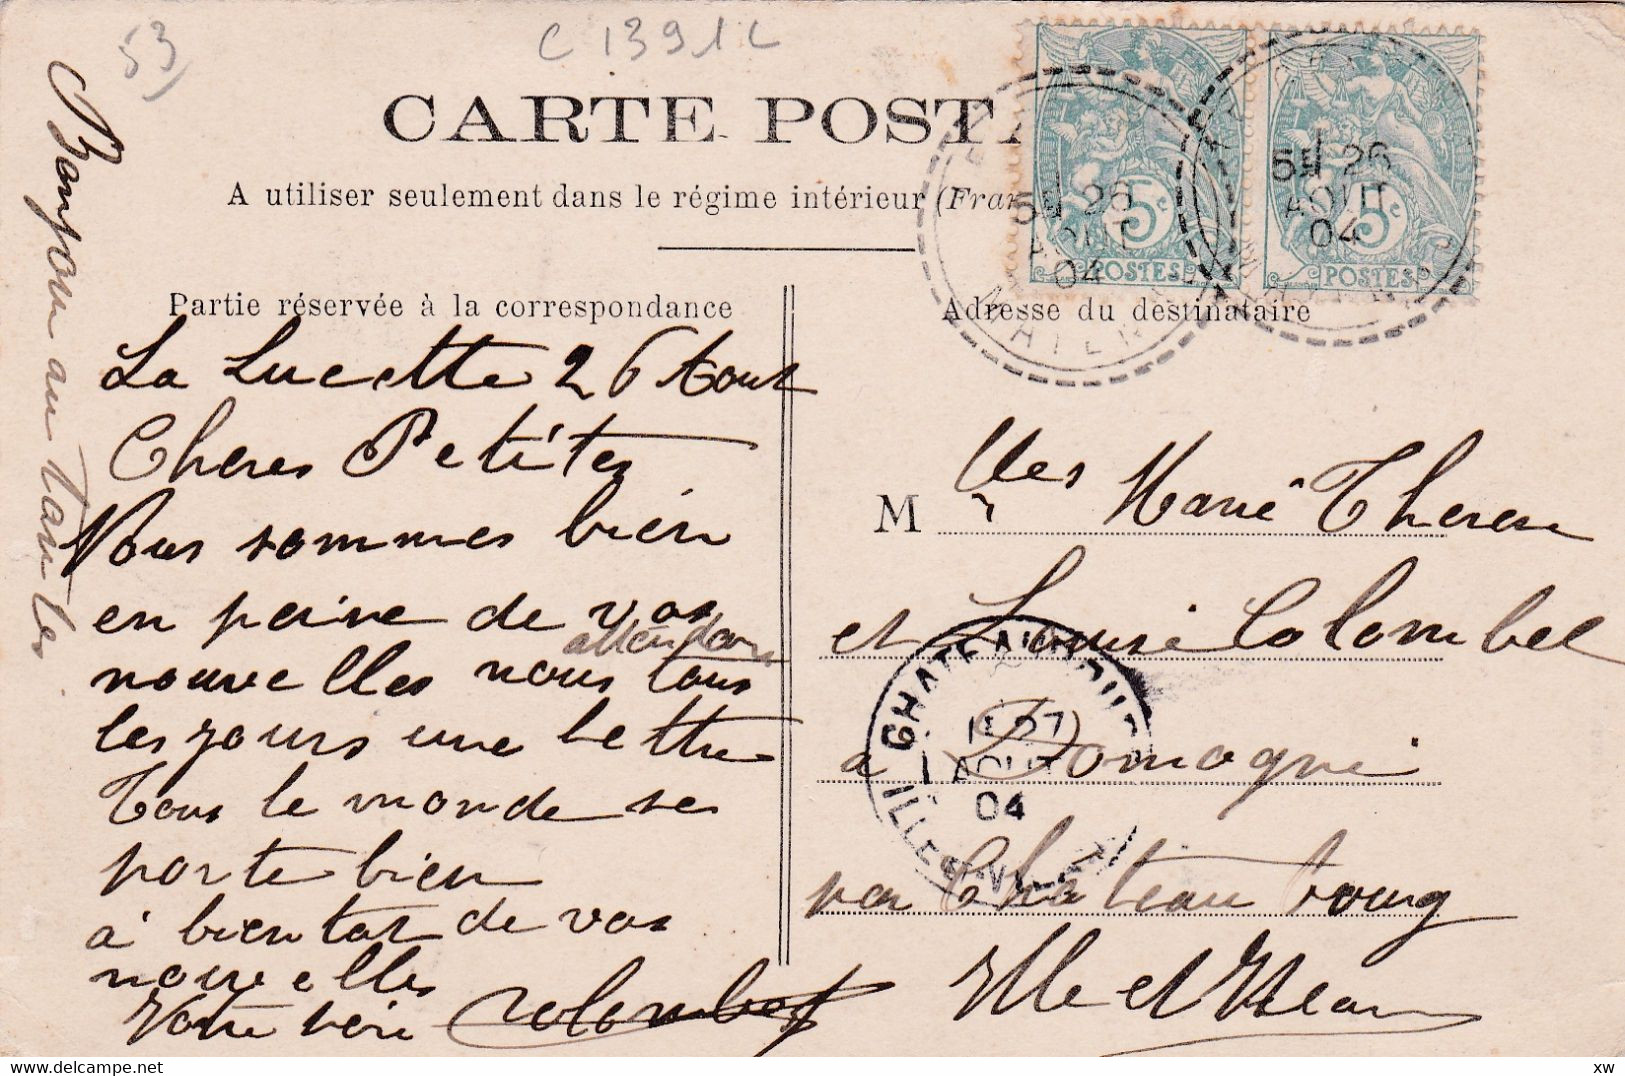 53
C 1391 L
CARTE POSTA
A utiliser seulement dans le régime intérieur (Fran
5E 26
AOUT
04
5c
POSTES
5E 26
AOUT
04
5c
POSTES
Bonjour au tantes
Partie réservée à la correspondance
La Lucette 26 Aout
Cheres Petites
Nous sommes bien
en peine de vos
nouvelles nous attendons tous
les jours une lettre
Tous le monde se
porte bien
à bientot de vos
nouvelles
Votre père Colombel
Adresse du destinataire
Mlles Marie Therese
et Louise Colombel
à Domagné
par Chateaubourg
Ille et Vilaine
CHATEAUBOURG
27
AOUT
04
ILLE-ET-VILAINE
xw